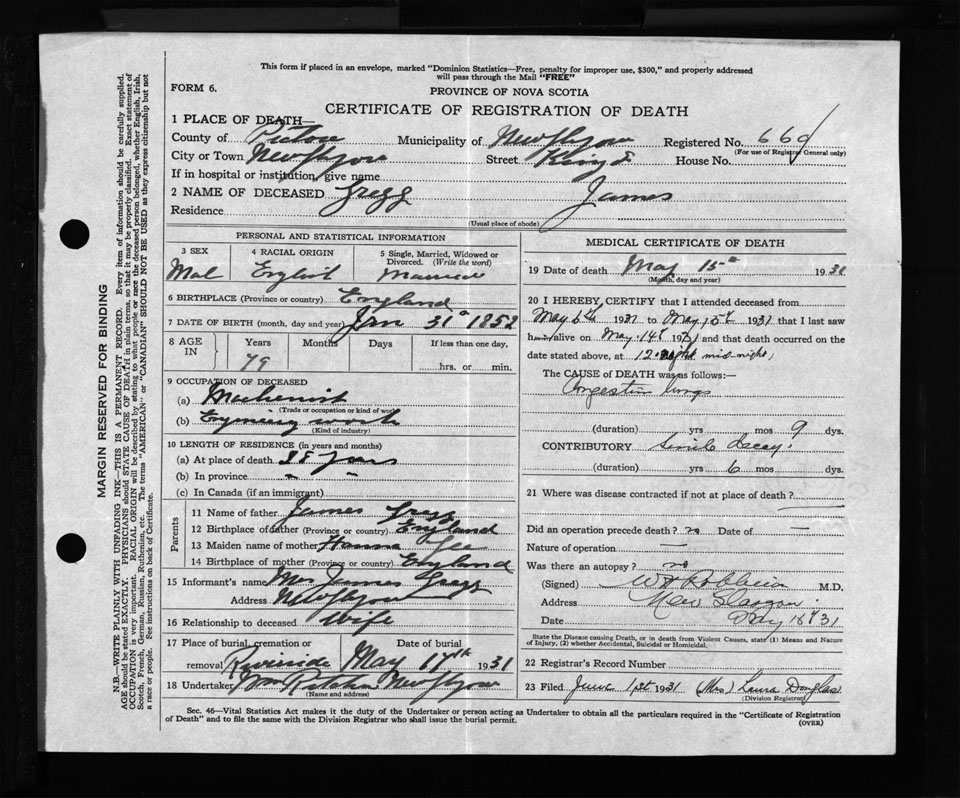 This form if placed in an envelope, marked "Dominion Statistics—Free, penalty for improper use, $300," and properly addressed
will pass through the Mail "FREE"
FORM 6.
PROVINCE OF NOVA SCOTIA
CERTIFICATE OF REGISTRATION OF DEATH
1 PLACE OF DEATH—
County of Pictou Municipality of New Glasgow Registered No. 669
(For use of Registrar General only)
City or Town New Glasgow Street King House No.
If in hospital or institution, give name
2 NAME OF DECEASED Gregg James
Residence
(Usual place of abode)
PERSONAL AND STATISTICAL INFORMATION
3 SEX
Mal
4 RACIAL ORIGIN
English
5 Single, Married, Widowed or
Divorced. (Write the word)
Married
6 BIRTHPLACE (Province or country) England
7 DATE OF BIRTH (month, day and year) Jan 31 1852
8 AGE IN
Years Months Days If less than one day,
79 hrs. or min.
9 OCCUPATION OF DECEASED
(a) Machinist
(Trade or occupation or kind of work)
(b) works
(Kind of industry)
10 LENGTH OF RESIDENCE (in years and months)
(a) At place of death
(b) In province - -
(c) In Canada (if an immigrant)
Parents
11 Name of father James Gregg
12 Birthplace of father (Province or country) England
13 Maiden name of mother Hanna Lee
14 Birthplace of mother (Province or country) England
15 Informant's name Mrs James Gregg
Address New Glasgow
16 Relationship to deceased Wife
17 Place of burial, cremation or Date of burial
removal Riverside May 17th 1931
18 Undertaker Wm New Glasgow
(Name and address)
MEDICAL CERTIFICATE OF DEATH
19 Date of death May 15th 1931
(Month, day and year)
20 I HEREBY CERTIFY that I attended deceased from
May 6th 1931 to May 15th 1931 that I last saw
h alive on May 14th 1931 and that death occurred on the
date stated above, at 12 night midnight
The CAUSE of DEATH was as follows:—
Congestion lungs
(duration) yrs mos 9 dys.
CONTRIBUTORY Senile decay.
(duration) yrs 6 mos dys.
21 Where was disease contracted if not at place of death?
Did an operation precede death? no Date of —
Nature of operation —
Was there an autopsy? no
(Signed) M.D.
Address New Glasgow
Date May 18 31
State the Disease causing Death, or in death from Violent Causes, state (1) Means and Nature
of Injury, (2) whether Accidental, Suicidal or Homicidal.
22 Registrar's Record Number
23 Filed June 1st 1931 (Mrs) Laura Douglas
(Division Registrar)
Sec. 46—Vital Statistics Act makes it the duty of the Undertaker or person acting as Undertaker to obtain all the particulars required in the "Certificate of Registration
of Death" and to file the same with the Division Registrar who shall issue the burial permit.
(OVER)
MARGIN RESERVED FOR BINDING
N.B.—WRITE PLAINLY WITH UNFADING INK—THIS IS A PERMANENT RECORD. Every item of information should be carefully supplied.
AGE should be stated EXACTLY. PHYSICIANS should STATE CAUSE OF DEATH in plain terms, so that it may be properly classified. Exact statement of
OCCUPATION is very important. RACIAL ORIGIN will be described by stating to what people or race the deceased person belonged, whether English, Irish,
Scotch, French, German, Russian, Ruthenian, etc. The terms "AMERICAN" or "CANADIAN" SHOULD NOT BE USED as they express citizenship but not
a race or people. See instructions on back of Certificate.